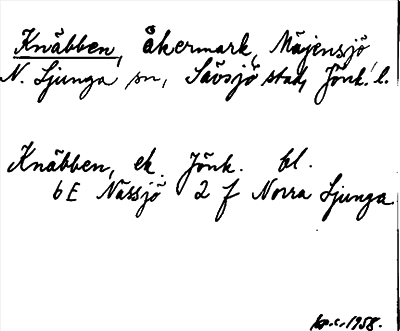 Knäbben, åkermark, Mäjensjö,
N. Ljunga sn, Sävsjö stad, Jönk. l.
Knäbben, ek. Jönk. bl.
6 E Nässjö 2 f Norra Ljunga
1958.